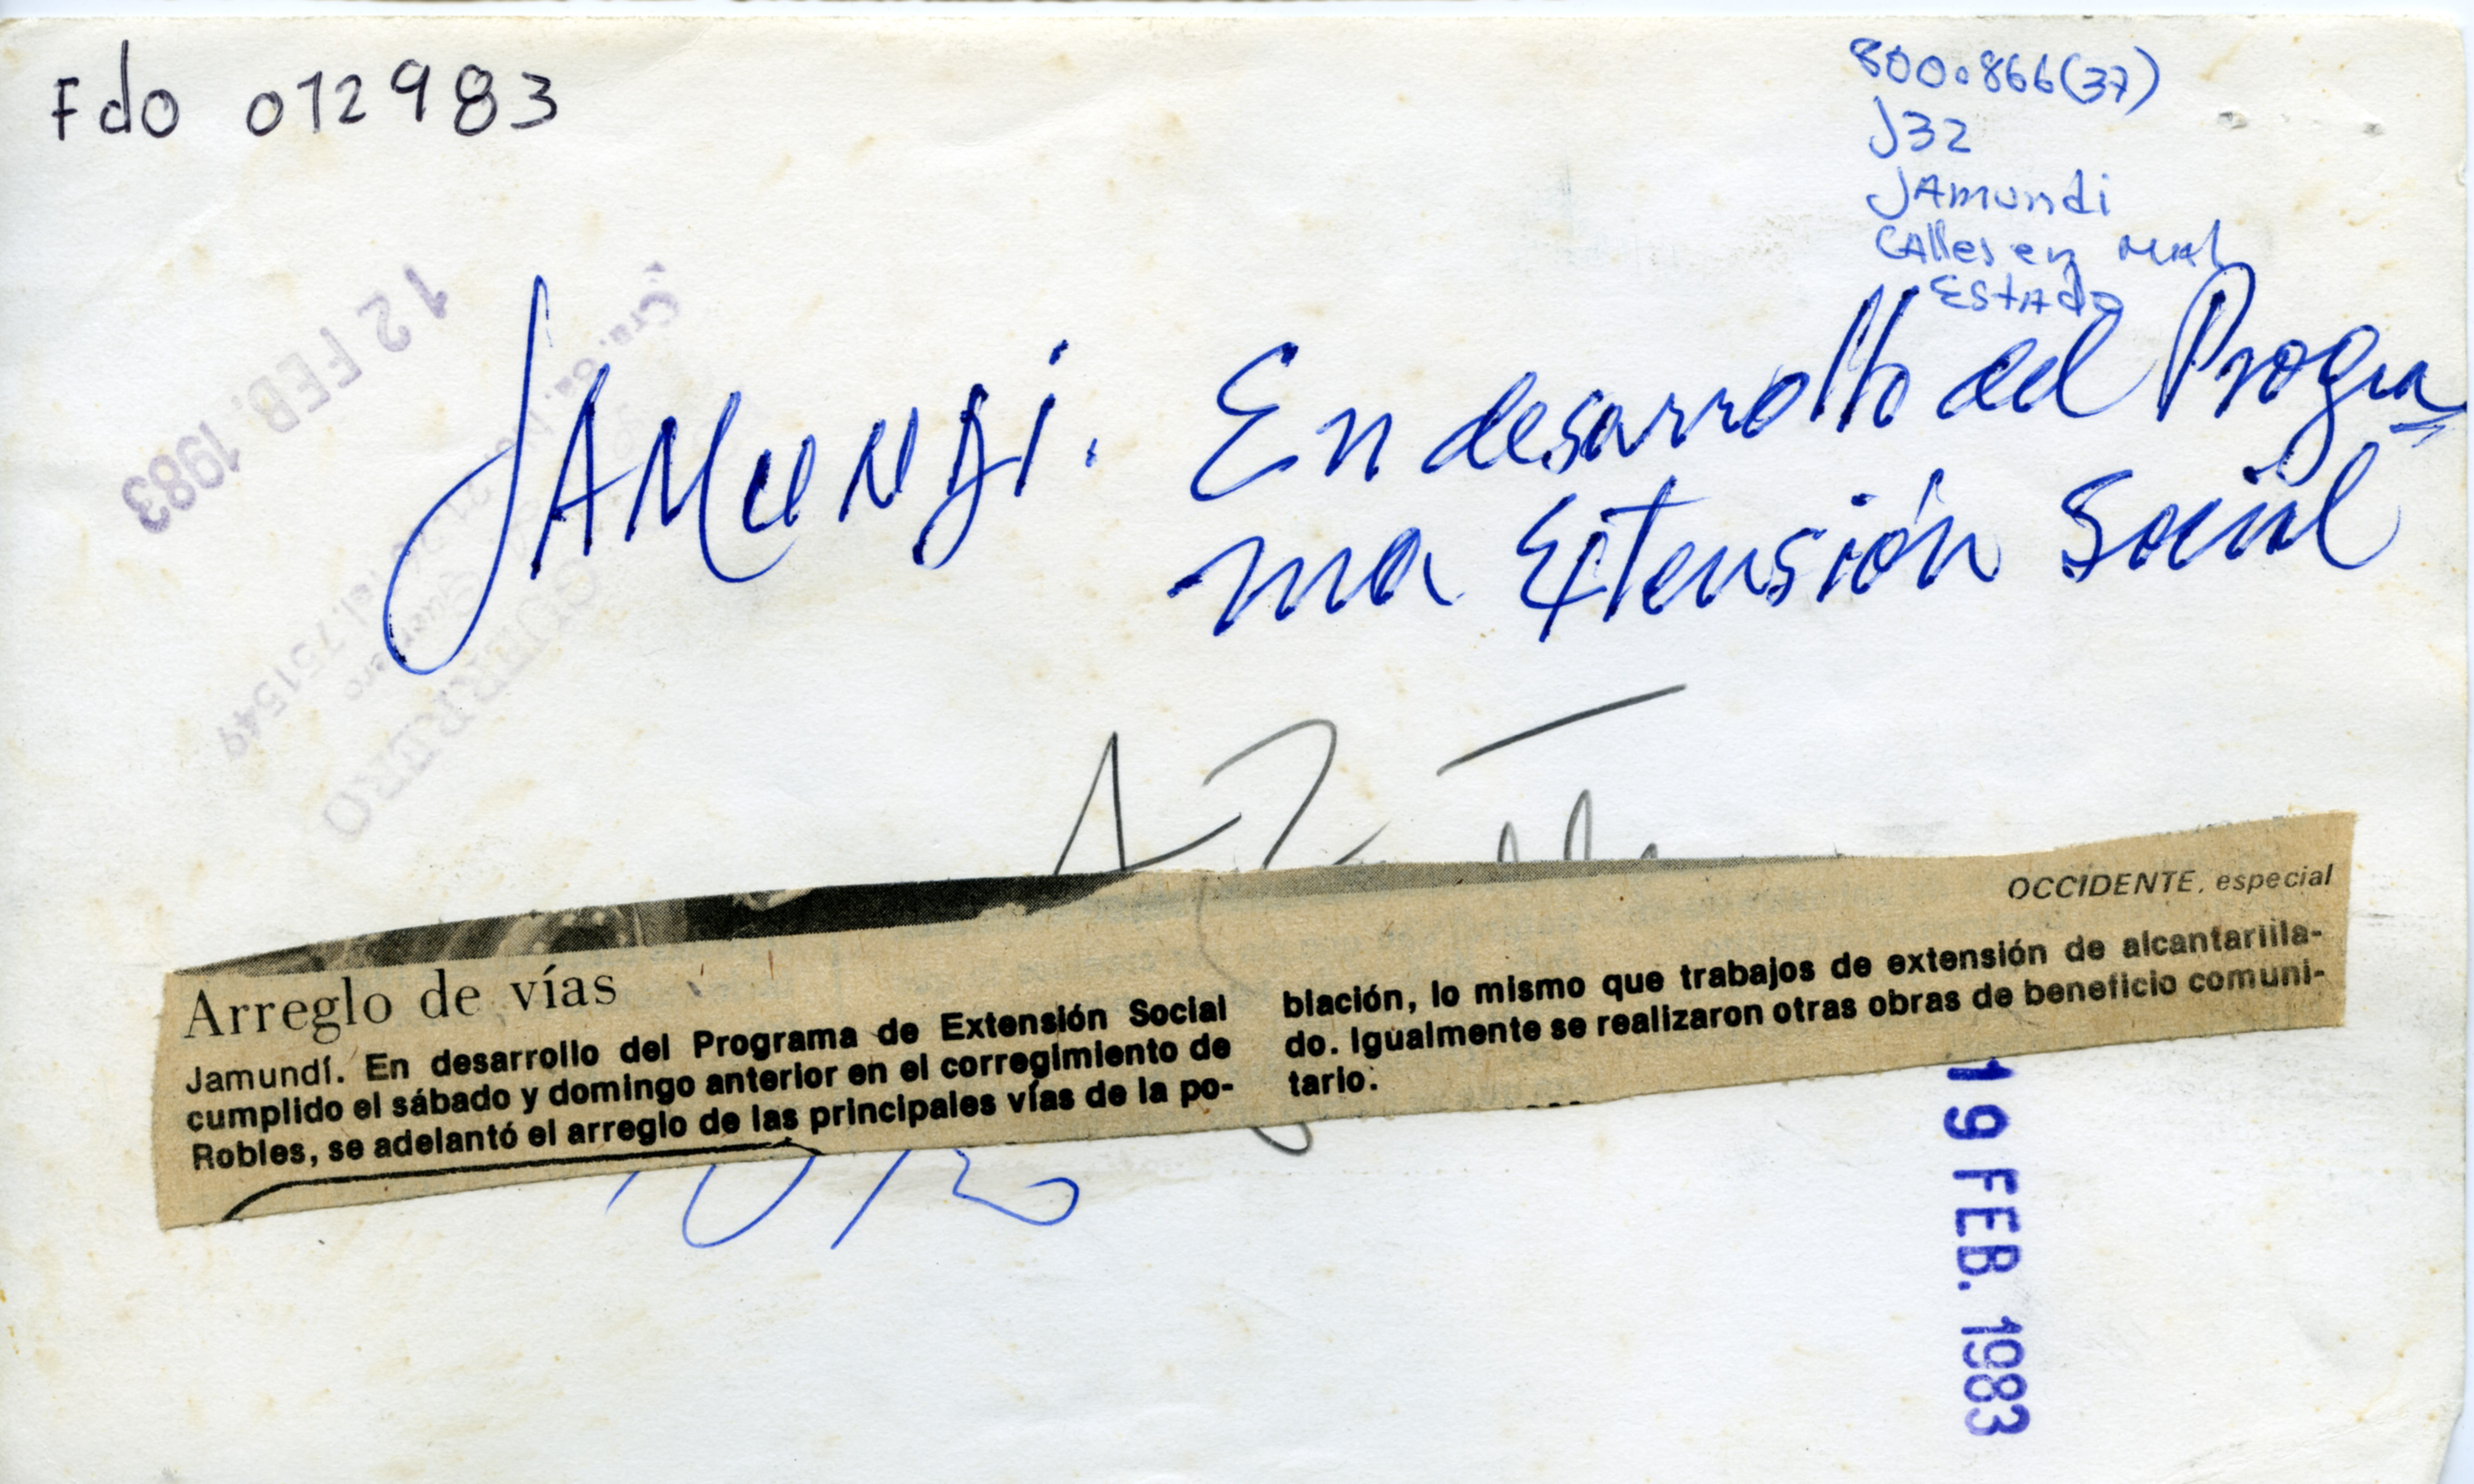 Fdo 012983
800.866(37)
J32
JAmundi
CAlles en mal
EStAdo
12 FEB. 1983
JAMUNDi. En desarrollo del Progra
ma Extensión Social
Tel. 751549
GUERRERO
OCCIDENTE, especial
Arreglo de vías
Jamundí. En desarrollo del Programa de Extensión Social
cumplido el sábado y domingo anterior en el corregimiento de
Robles, se adelantó el arreglo de las principales vías de la po-
blación, lo mismo que trabajos de extensión de alcantarilla-
do. Igualmente se realizaron otras obras de beneficio comuni-
tario.
19 FEB. 1983